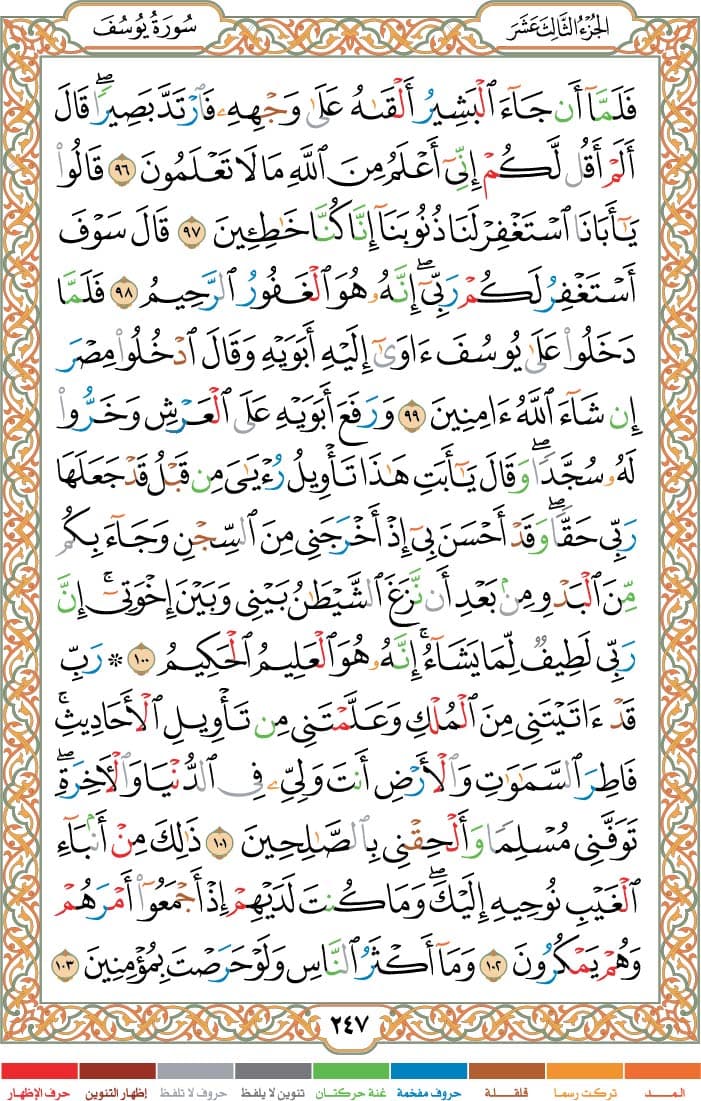 الجُزءُ الثَّالِثَ عَشَرَ
سُورَةُ يُوسُفَ
فَلَمَّآ أَن جَآءَ ٱلْبَشِيرُ أَلْقَىٰهُ عَلَىٰ وَجْهِهِۦ فَٱرْتَدَّ بَصِيرًا ۖ قَالَ
أَلَمْ أَقُل لَّكُمْ إِنِّىٓ أَعْلَمُ مِنَ ٱللَّهِ مَا لَا تَعْلَمُونَ ٩٦ قَالُوا۟
يَـٰٓأَبَانَا ٱسْتَغْفِرْ لَنَا ذُنُوبَنَآ إِنَّا كُنَّا خَـٰطِـِٔينَ ٩٧ قَالَ سَوْفَ
أَسْتَغْفِرُ لَكُمْ رَبِّىٓ ۖ إِنَّهُۥ هُوَ ٱلْغَفُورُ ٱلرَّحِيمُ ٩٨ فَلَمَّا
دَخَلُوا۟ عَلَىٰ يُوسُفَ ءَاوَىٰٓ إِلَيْهِ أَبَوَيْهِ وَقَالَ ٱدْخُلُوا۟ مِصْرَ
إِن شَآءَ ٱللَّهُ ءَامِنِينَ ٩٩ وَرَفَعَ أَبَوَيْهِ عَلَى ٱلْعَرْشِ وَخَرُّوا۟
لَهُۥ سُجَّدًا ۖ وَقَالَ يَـٰٓأَبَتِ هَـٰذَا تَأْوِيلُ رُءْيَـٰىَ مِن قَبْلُ قَدْ جَعَلَهَا
رَبِّى حَقًّا ۖ وَقَدْ أَحْسَنَ بِىٓ إِذْ أَخْرَجَنِى مِنَ ٱلسِّجْنِ وَجَآءَ بِكُم
مِّنَ ٱلْبَدْوِ مِنۢ بَعْدِ أَن نَّزَغَ ٱلشَّيْطَـٰنُ بَيْنِى وَبَيْنَ إِخْوَتِىٓ ۚ إِنَّ
رَبِّى لَطِيفٌ لِّمَا يَشَآءُ ۚ إِنَّهُۥ هُوَ ٱلْعَلِيمُ ٱلْحَكِيمُ ١٠٠ ۞ رَبِّ
قَدْ ءَاتَيْتَنِى مِنَ ٱلْمُلْكِ وَعَلَّمْتَنِى مِن تَأْوِيلِ ٱلْأَحَادِيثِ ۚ
فَاطِرَ ٱلسَّمَـٰوَٰتِ وَٱلْأَرْضِ أَنتَ وَلِىِّۦ فِى ٱلدُّنْيَا وَٱلْـَٔاخِرَةِ ۖ
تَوَفَّنِى مُسْلِمًا وَأَلْحِقْنِى بِٱلصَّـٰلِحِينَ ١٠١ ذَٰلِكَ مِنْ أَنۢبَآءِ
ٱلْغَيْبِ نُوحِيهِ إِلَيْكَ ۖ وَمَا كُنتَ لَدَيْهِمْ إِذْ أَجْمَعُوٓا۟ أَمْرَهُمْ
وَهُمْ يَمْكُرُونَ ١٠٢ وَمَآ أَكْثَرُ ٱلنَّاسِ وَلَوْ حَرَصْتَ بِمُؤْمِنِينَ ١٠٣
٢٤٧
المـــد تركت رسما قلقـلة حروف مفخمة غنة حركتان تنوين لا يلفظ حروف لا تلفظ إظهار التنوين حرف الإظهار